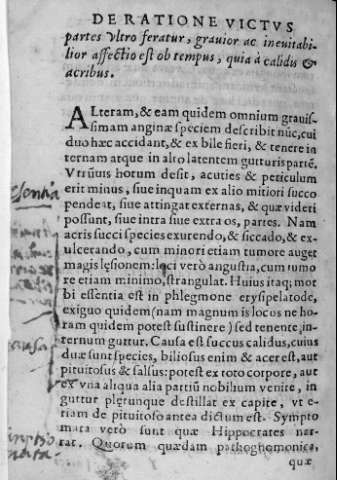 DE RATIONE VICTVS
partes vltro feratur, grauior ac ineuitabi-
lior affectio est ob tempus, quia à calidis &
acribus.
ALteram, & eam quidem omnium grauis-
simam anginæ speciem describit nũc, cui
duo hæc accidant, & ex bile fieri, & tenere in
ternam atque in alto latentem gutturis partẽ.
Vtrũuis horum desit, acuties & periculum
erit minus, siue inquam ex alio mitiori succo
pendeat, siue attingat externas, & quæ videri
possunt, siue intra siue extra os, partes. Nam
acris succi species exurendo, & siccado, & ex-
ulcerando, cum minori etiam tumore auget
magis lęsionem: loci verò angustia, cum tumo
re etiam minimo, strangulat. Huius itaq; mor
bi essentia est in phlegmone erysipelatode,
exiguo quidem (nam magnum is locus ne ho-
ram quidem potest sustinere) sed tenente, in-
ternum guttur. Causa est succus calidus, cuius
duæ sunt species, biliosus enim & acer est, aut
pituitosus & salsus: potest ex toto corpore, aut
ex vna aliqua alia partiũ nobilium venire, in
guttur plęrunque destillat ex capite, vt e-
tiam de pituitoso antea dictum est. Sympto
mata verò sunt quæ Hippocrates nar-
rat. Quorum quædam pathognomonica,
quæ
essentia
causa